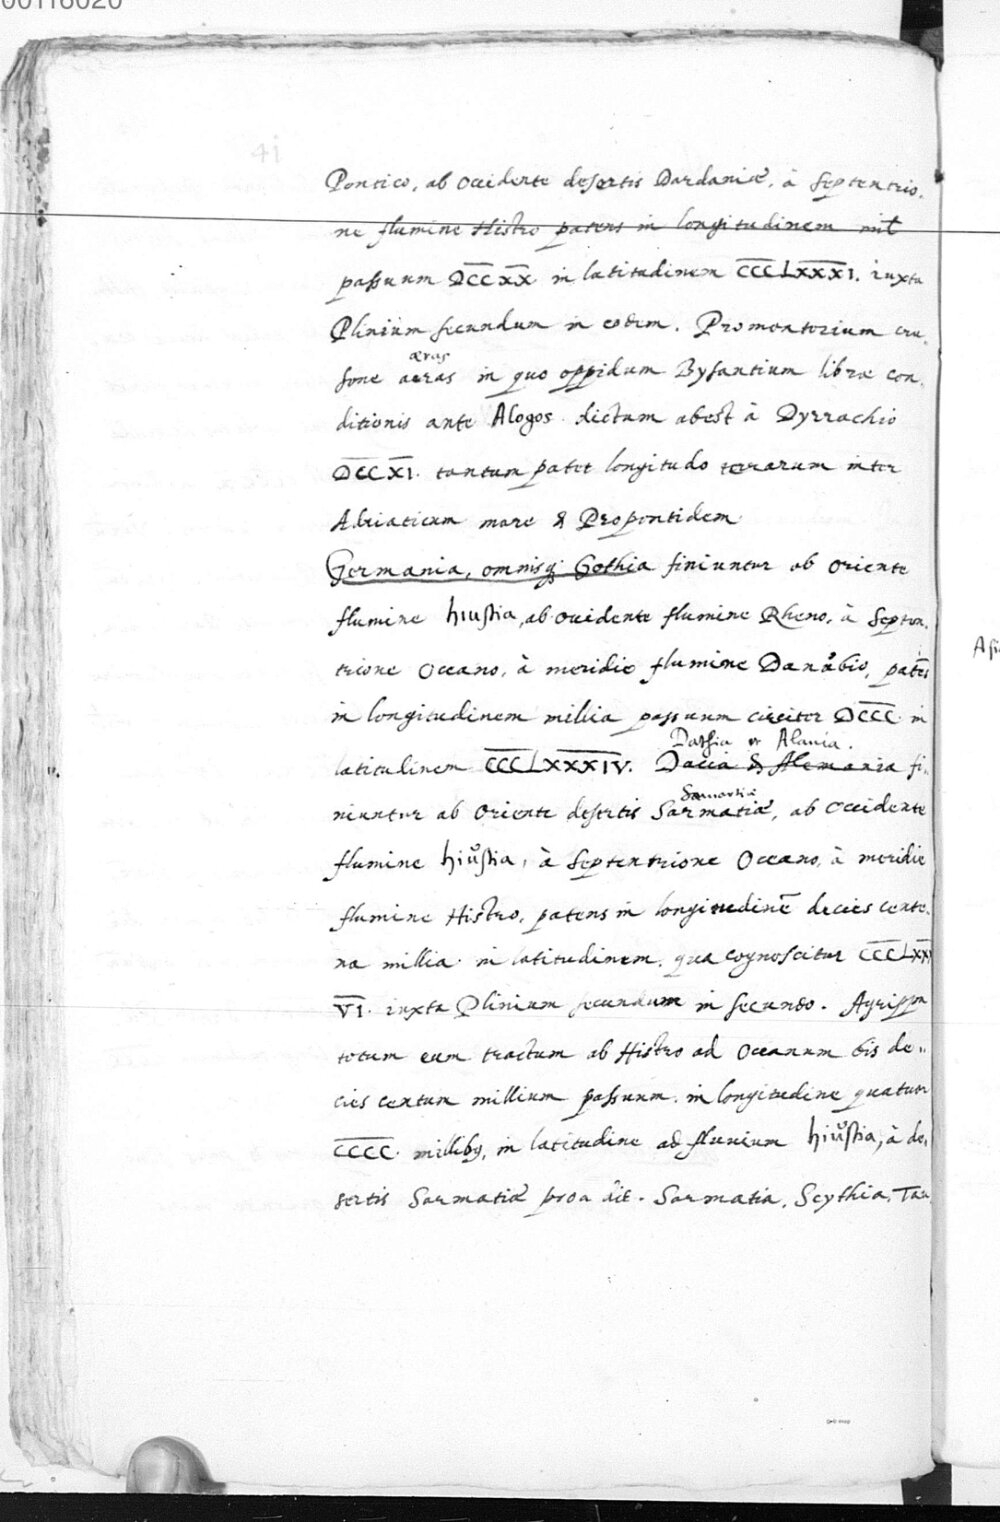 00116020
Pontico, ab occidente desertis Dardaniæ, à Septentrio-
ne flumine Histro patens in longitudinem mil
passuum D̅C̅C̅X̅X̅ in latitudinem C̅C̅C̅L̅X̅X̅X̅I. iuxta
Plinium secundum in eodem. Promontorium cru-
æras
sone aeras in quo oppidum Bysantium libræ con-
ditionis ante Alogos dictum abest à Dyrrachio
D̅C̅C̅X̅I. tantum patet longitudo terarum inter
Adriaticum mare & Propontidem
Germania, omnisq; Gothia finiuntur ab oriente
flumine hiustia, ab occidente flumine Rheno, à Septen-
trione Oceano, à meridie flumine Danůbio, patēs
in longitudinem millia passuum circiter D̅C̅C̅C̅ in
Dathia et Alania.
latitudinem C̅C̅C̅L̅X̅X̅X̅I̅V̅. Dacia & Alemania fi-
Samartiæ
niuntur ab oriente desertis Sarmatiæ, ab occidente
flumine hiůstia, à Septentrione Oceano, à meridie
flumine Histro, patens in longitudinē decies cente-
na millia in latitudinem, qua cognoscitur C̅C̅C̅L̅X̅X̅
V̅I̅. iuxta Plinium secundum in secundo. Agrippa
totum eum tractum ab Histro ad Oceanum bis de-
cies centum millium passuum in longitudine quatuor
C̅C̅C̅C̅ millibq, in latitudine ad fluuium hiůstia, à de-
sertis Sarmatiæ prodit. Sarmatia, Scythia, Tau